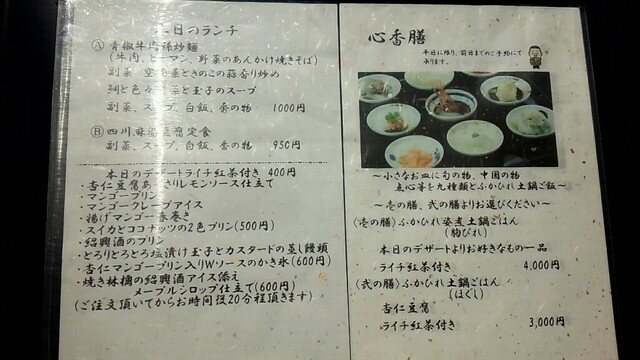 本日のランチ
Ⓐ 青椒牛肉絲炒麺
(牛肉、ピーマン、野菜のあんかけ焼きそば)
副菜 空芯菜ときのこの蒜香り炒め
菜と玉子のスープ
副菜、スープ、白飯、香の物 1000円
Ⓑ 四川麻婆豆腐定食
副菜、スープ、白飯、香の物 950円
本日のデザートライチ紅茶付き 400円
・杏仁豆腐あっさりレモンソース仕立て
・マンゴープリン
・マンゴークレープアイス
・揚げマンゴー春巻き
・スイカとココナッツの2色プリン(500円)
・紹興酒のプリン
・とろりとろとろ塩漬け玉子とカスタードの蒸し饅頭
・杏仁マンゴープリン入りWソースのかき氷(600円)
・焼き林檎の紹興酒アイス添え
メープルシロップ仕立て(600円)
(ご注文頂いてからお時間後20分程頂きます)
心香膳
平日に限り、前日までのご予約にて
承ります。
～小さなお皿に旬の物、中国の物
点心等を九種類とふかひれ土鍋ご飯～
～壱の膳、弐の膳よりお選びください～
〈壱の膳〉ふかひれ姿煮土鍋ごはん
(胸びれ)
本日のデザートよりお好きなもの一品
ライチ紅茶付き 4,000円
〈弐の膳〉ふかひれ土鍋ごはん
(ほぐし)
杏仁豆腐
ライチ紅茶付き 3,000円